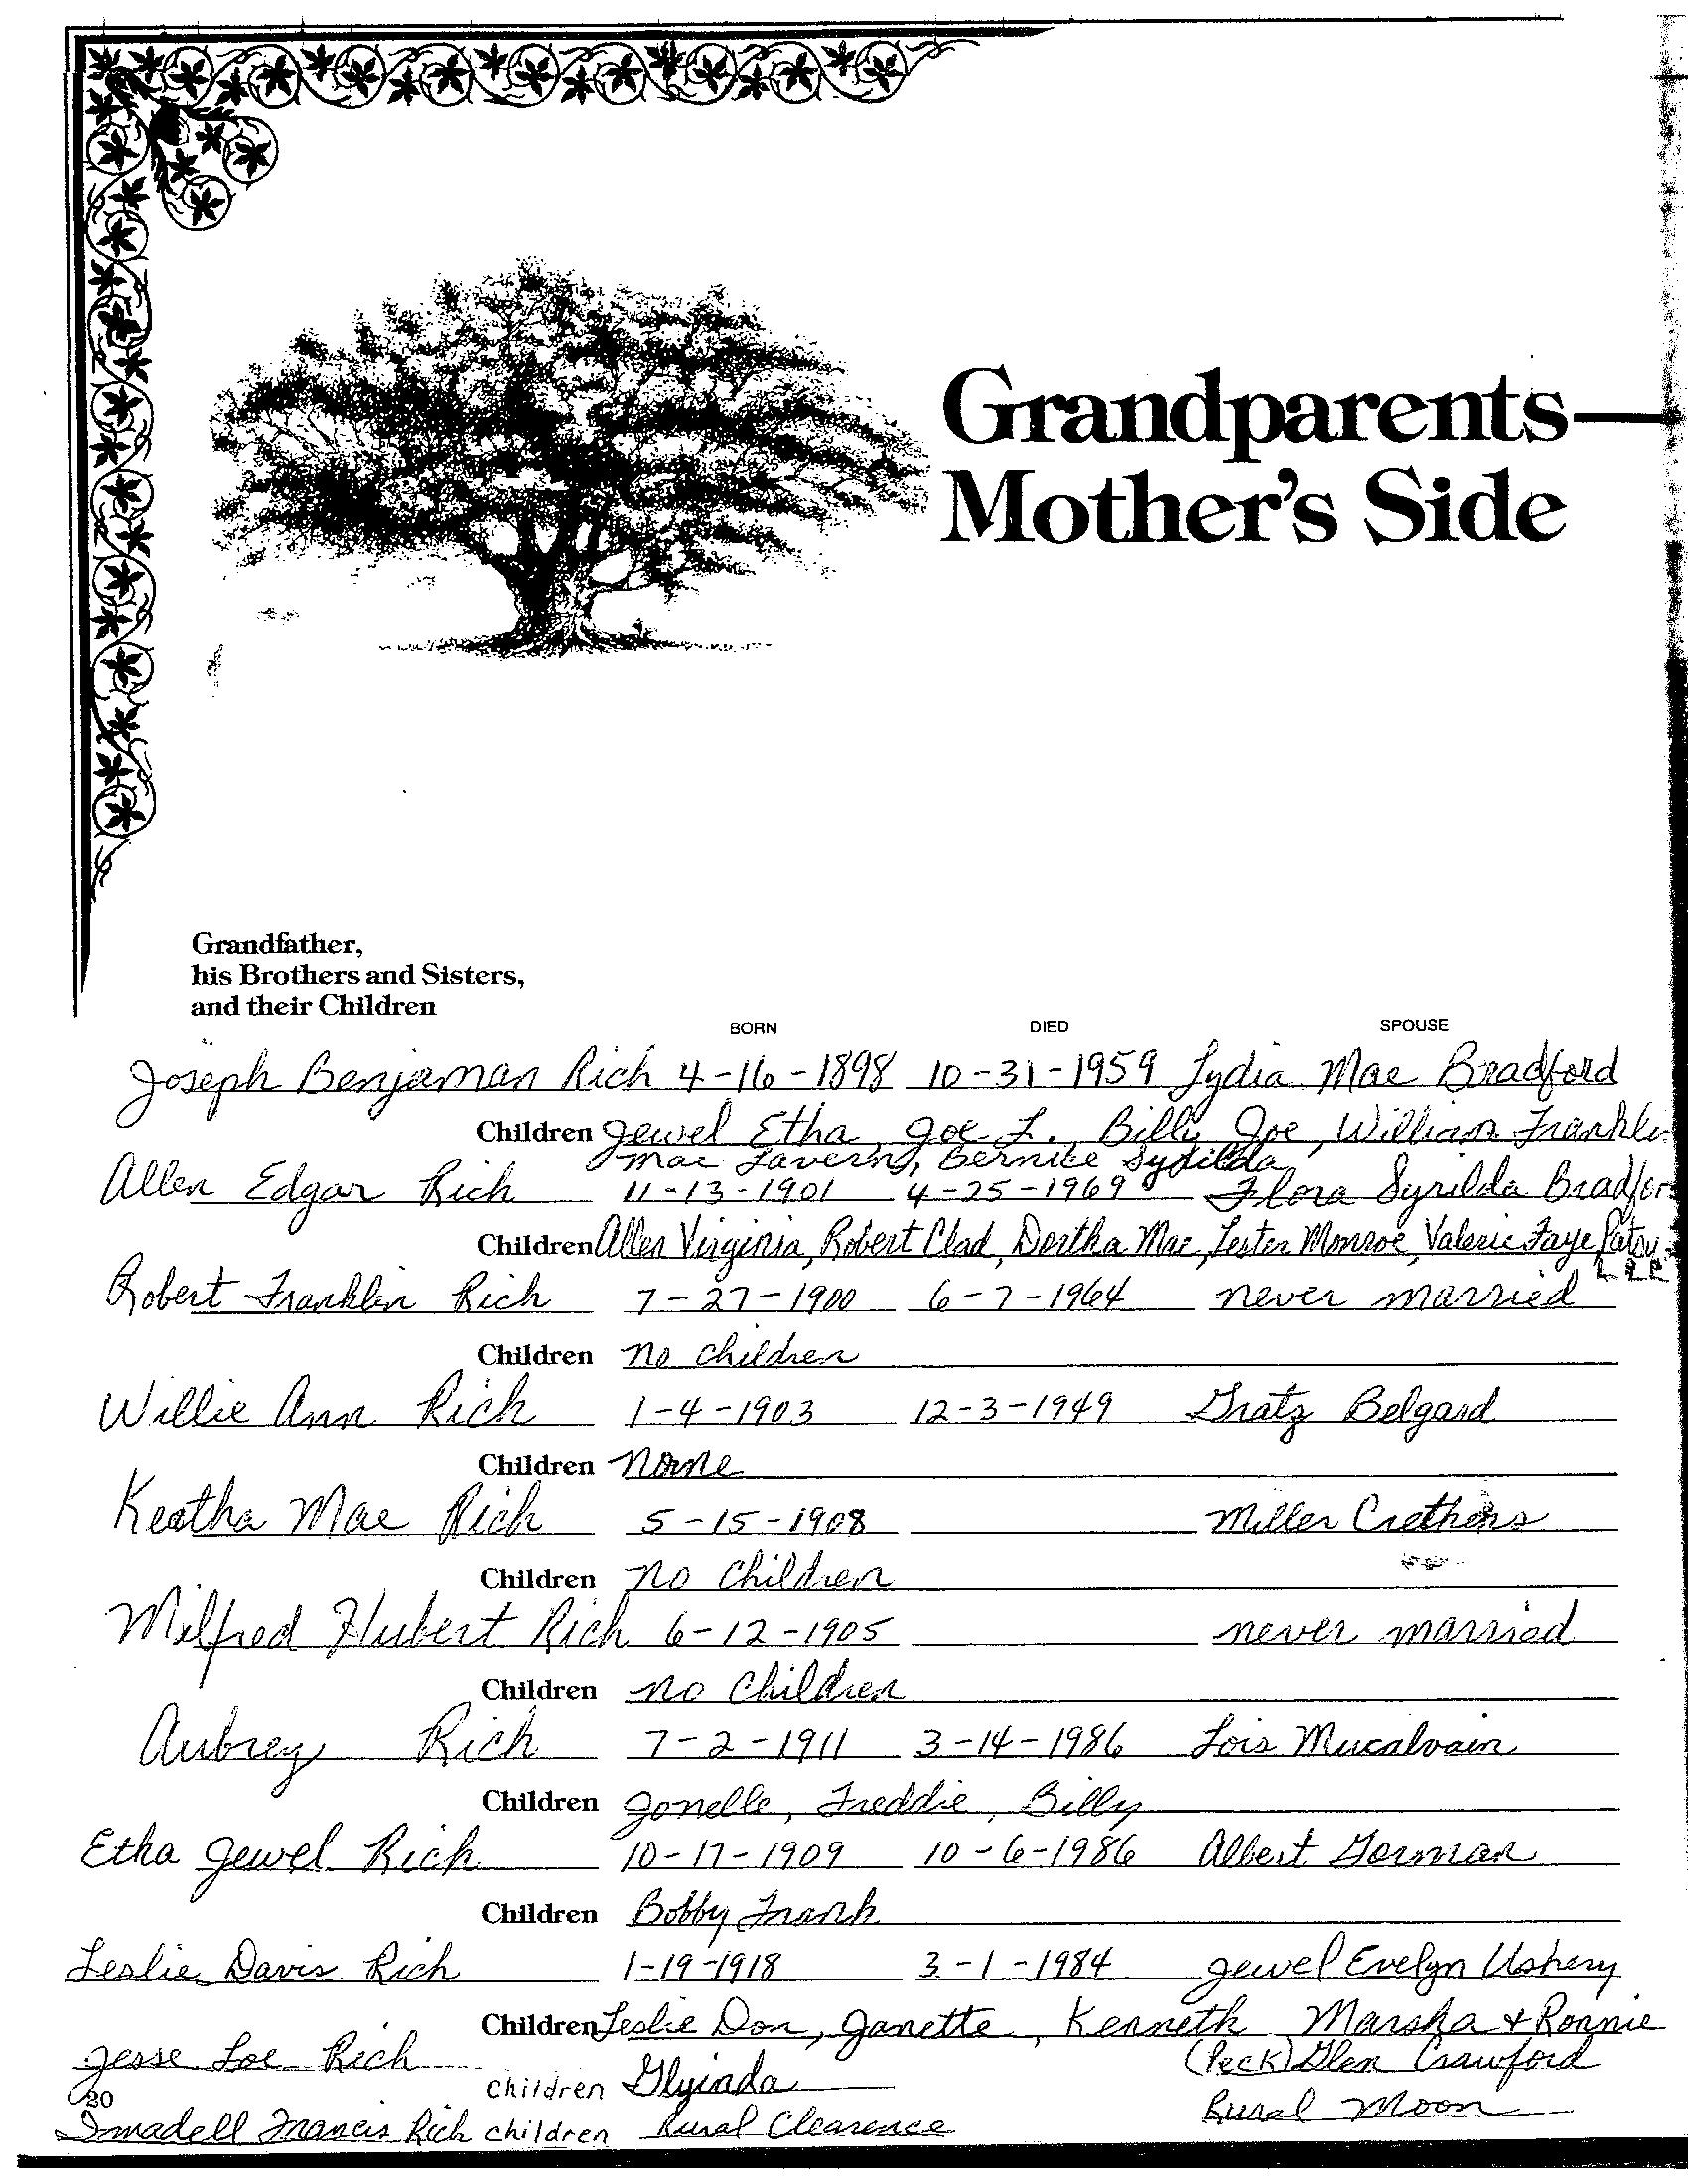 Grandparents—
Mother's Side
Grandfather,
his Brothers and Sisters,
and their Children
BORN DIED SPOUSE
Joseph Benjaman Rich 4-16-1898 10-31-1959 Lydia Mae Bradford
Children Jewel Etha, Joe L., Billy Joe, William Franklin
Mae Lavern, Bernice Sydilda
Allen Edgar Rich 11-13-1901 4-25-1969 Flora Syrilda Bradford
Children Allen Virginia, Robert Clad, Dortha Mae, Lester Monroe, Valerie Faye Patsy
Lee
Robert Franklin Rich 7-27-1900 6-7-1964 never married
Children no children
Willie Ann Rich 1-4-1903 12-3-1949 Gratz Belgard
Children None
Keatha Mae Rich 5-15-1908 Miller Crethens
Children no children
Milfred Hubert Rich 6-12-1905 never married
Children no children
Aubrey Rich 7-2-1911 3-14-1986 Lois Mucalvain
Children Jonelle, Freddie, Billy
Etha Jewel Rich 10-17-1909 10-6-1986 Albert Gorman
Children Bobby Frank
Leslie Davis Rich 1-19-1918 3-1-1984 Jewel Evelyn Ushery
Children Leslie Don, Janette, Kenneth Marsha & Ronnie
Jesse Loe Rich children Glyinda (Peck) Glen Crawford
20
Imadell Francis Rich children Rural Clearence Rural Moon